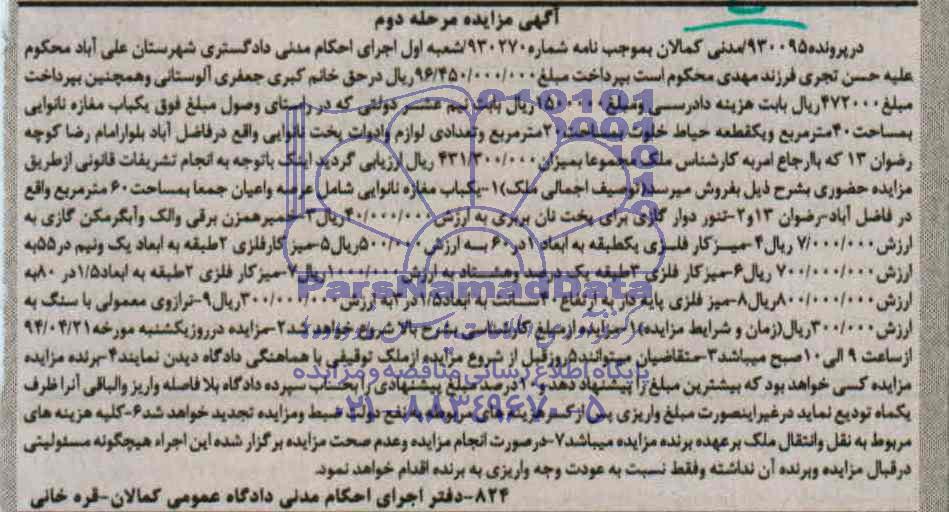 آگهی مزایده مرحله دوم
در پرونده ۹۳۰۰۹۵/مدنی کمالان بموجب نامه شماره ۹۳۰۲۷۰/شعبه اول اجرای احکام مدنی دادگستری شهرستان علی آباد محکوم
علیه حسن تجری فرزند مهدی محکوم است بپرداخت مبلغ ۹۶/۴۵۰/۰۰۰/۰۰۰ ریال درحق خانم کبری جعفری آلوستانی وهمچنین بپرداخت
مبلغ ۴۷۲۰۰۰ ریال بابت هزینه دادرسی ومبلغ ۱۵۰۰۰۰۰ ریال بابت نیم عشر دولتی که در راستای وصول مبلغ فوق یکباب مغازه نانوایی
بمساحت ۴۰ مترمربع ویکقطعه حیاط خلوت بمساحت ۲۰ مترمربع وتعدادی لوازم وادوات پخت نانوایی واقع درفاضل آباد بلوارامام رضا کوچه
رضوان ۱۳ که باارجاع امربه کارشناس ملک مجموعا بمیزان ۴۳۱/۳۰۰/۰۰۰ ریال ارزیابی گردید اینک باتوجه به انجام تشریفات قانونی ازطریق
مزایده حضوری بشرح ذیل بفروش میرسد(توصیف اجمالی ملک)۱-یکباب مغازه نانوایی شامل عرصه واعیان جمعا بمساحت ۶۰ مترمربع واقع
در فاضل آباد-رضوان ۱۳و۲-تنور دوار گازی برای پخت نان بربری به ارزش ۴۰/۰۰۰/۰۰۰ ریال۳-خمیرهمزن برقی والک وآبگرمکن گازی به
ارزش ۷/۰۰۰/۰۰۰ ریال۴-میزکار فلزی یکطبقه به ابعاد ۱در ۶۰ به ارزش ۵۰۰/۰۰۰ریال۵-میز کارفلزی ۲طبقه به ابعاد یک ونیم در۵۵به
ارزش ۷۰۰/۰۰۰/۰۰۰ ریال۶-میزکار فلزی ۳طبقه یک درصد وهشتاد به ارزش ۱۰۰۰/۰۰۰ریال۷-میزکار فلزی ۲طبقه به ابعاد۱/۵در ۸۰به
ارزش ۸۰۰/۰۰۰/۰۰۰ریال۸-میز فلزی پایه دار به ارتفاع ۴۰سانت به ابعاد۱/۵در۳به ارزش ۳۰۰/۰۰۰ریال۹-ترازوی معمولی با سنگ به
ارزش ۳۰۰/۰۰۰ریال(زمان و شرایط مزایده)۱-مزایده ازمبلغ کارشناسی بشرح بالا شروع خواهد شد۲-مزایده درروزیکشنبه مورخه ۹۴/۰۴/۲۱
ازساعت ۹ الی ۱۰صبح میباشد۳-متقاضیان میتوانند۵روزقبل از شروع مزایده ازملک توقیفی با هماهنگی دادگاه دیدن نمایند۴-برنده مزایده
مزایده کسی خواهد بود که بیشترین مبلغ را پیشنهاد دهد ۱۰درصد مبلغ پیشنهادی را بحساب سپرده دادگاه بلا فاصله واریز والباقی آنرا ظرف
یکماه تودیع نماید درغیراینصورت مبلغ واریزی پس ازکسر هزینه های مربوطه بنفع دولت ضبط ومزایده تجدید خواهد شد۶-کلیه هزینه های
مربوط به نقل وانتقال ملک برعهده برنده مزایده میباشد۷-درصورت انجام مزایده وعدم صحت مزایده برگزار شده این اجراء هیچگونه مسئولیتی
درقبال مزایده وبرنده آن نداشته وفقط نسبت به عودت وجه واریزی به برنده اقدام خواهد نمود.
۸۲۴-دفتر اجرای احکام مدنی دادگاه عمومی کمالان-قره خانی
ParsNamadData
پایگاه اطلاع رسانی مناقصه و مزایده
۰۲۱-۸۸۳۴۹۶۷۰-۵